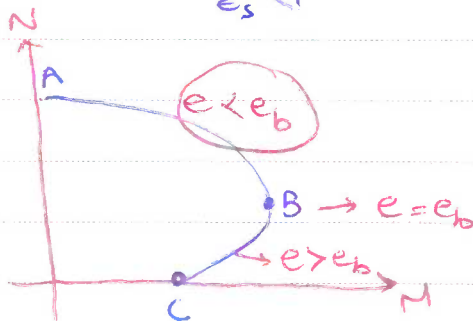 εs
N
A
e < eb
B → e = eb
→ e > eb
C
M